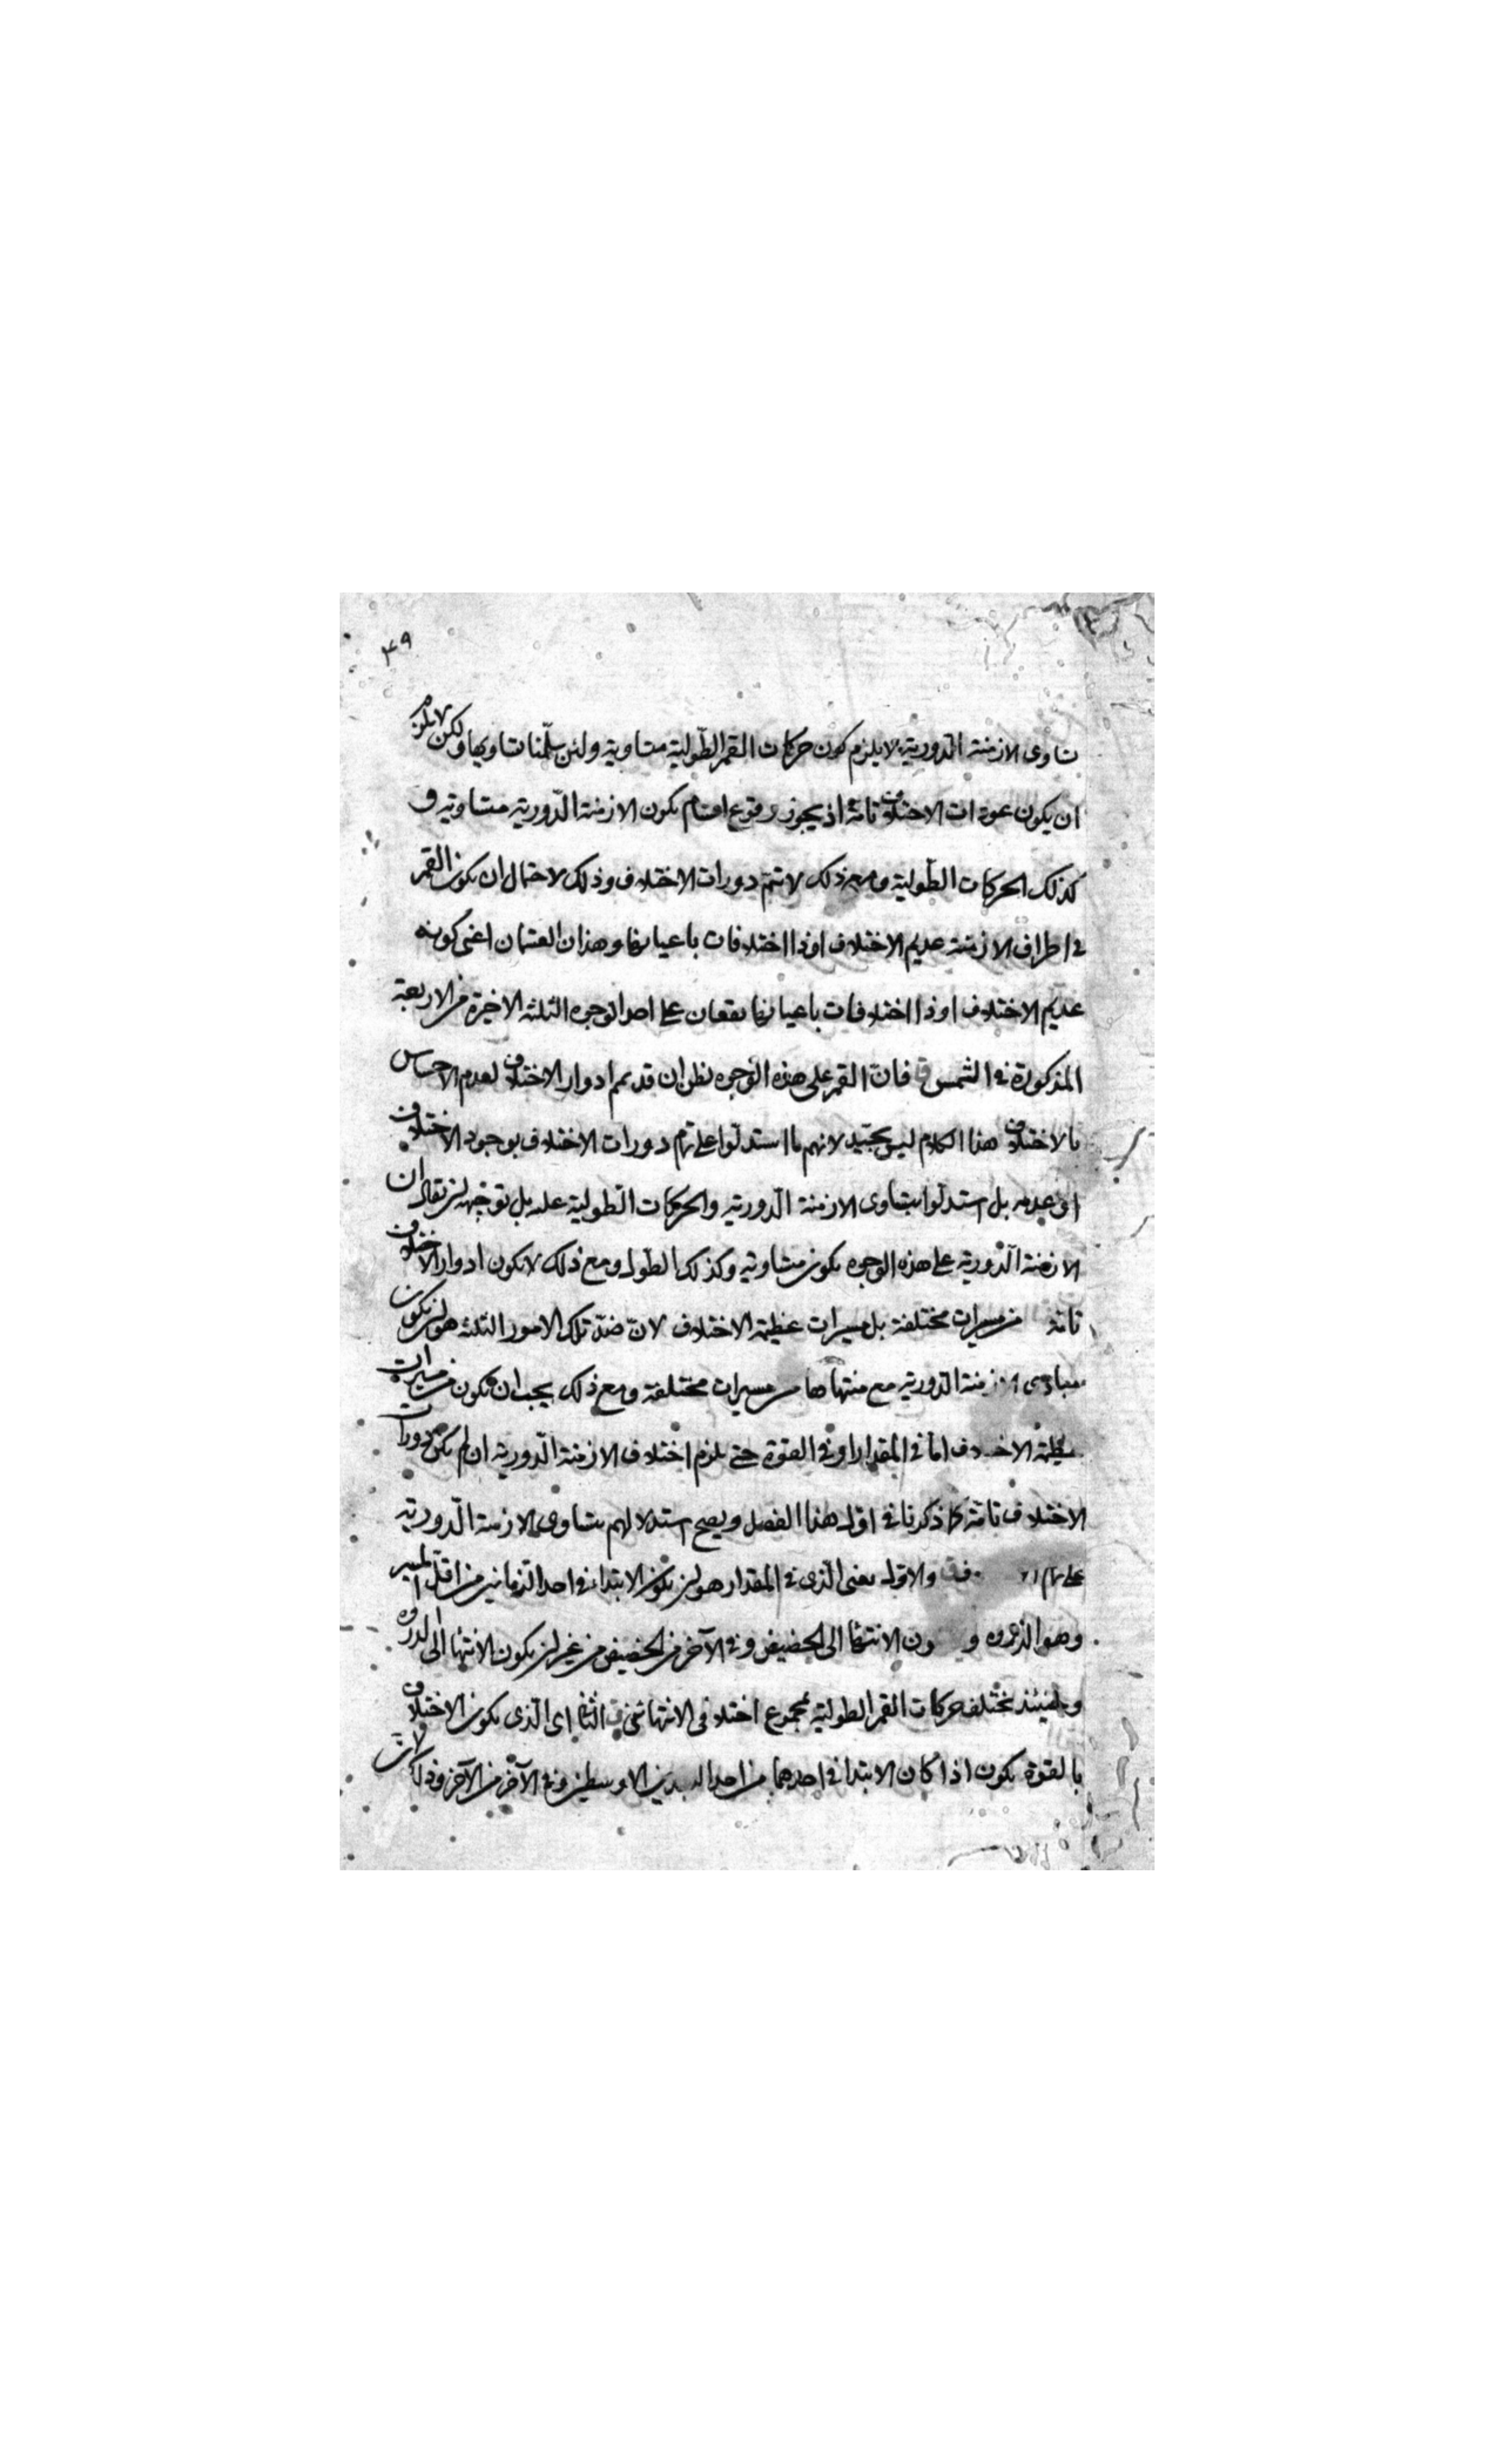 ٤٩
تساوى الازمنة الدّورية لا يلزم كون حركات القمر الطّولية متساوية ولئن سلّمنا تساويها ولكن لا يلزم
ان يكون عودات الاختلاف تامّة اذ يجوز وقوع اقسام يكون الازمنة الدّورية متساوية و
كذلك الحركات الطّولية ومع ذلك لا تتمّ دورات الاختلاف وذلك لاحتمال ان يكون القمر
فى اطراف الازمنة عديم الاختلاف او ذا اختلافات باعيانها وهذان القسمان اعنى كونه
عديم الاختلاف او ذا اختلافات باعيانها يقعان على احد الوجوه الثلثة الاخيرة من الاربعة
المذكورة فى الشمس فانّ القمر على هذه الوجوه يظن ان قد تمم ادوار الاختلاف لعدم الاحساس
بالاختلاف هذا الكلام ليس بجيّد لانهم ما استدلّوا على تمام دورات الاختلاف بوجود الاختلاف
او عدمه بل استدلّوا بتساوى الازمنة الدّورية والحركات الطّولية عليه بل توجيهه ان يقال ان
الازمنة الدّورية على هذه الوجوه يكون متساوية وكذلك الطول ومع ذلك لا يكون ادوار الاختلاف
تامّة من مسيرات مختلفة بل مسيرات عظيمة الاختلاف لانّ ضدّ تلك الامور الثلثة هو ان يكون
مبادى الازمنة الدّورية مع منتهاها من مسيرات مختلفة ومع ذلك يجب ان يكون من مسيرات
عظيمة الاختلاف امّا فى المقدار او فى القوة حتى يلزم اختلاف الازمنة الدّورية ان لم يكن دورات
الاختلاف تامّة كما ذكرنا فى اوّل هذا الفصل ويصح استدلالهم بتساوى الازمنة الدّورية
على تمام والاوّل يعنى الذى فى المقدار هو ان يكون الابتداء فى احد الزمانين من اقلّ المسير
وهو الذروة و ون الانتهاء الى الحضيض وفى الآخر من الحضيض من غير ان يكون الانتهاء الى الذروة
وحينئذ تختلف حركات القمر الطولية بمجموع اختلافى الانتهائين الثانى اى الّذى يكون الاختلاف
بالقوة يكون اذا كان الابتداء فى احدهما من احد البعدين الاوسطين وفى الآخر من الآخر وذلك لانّ